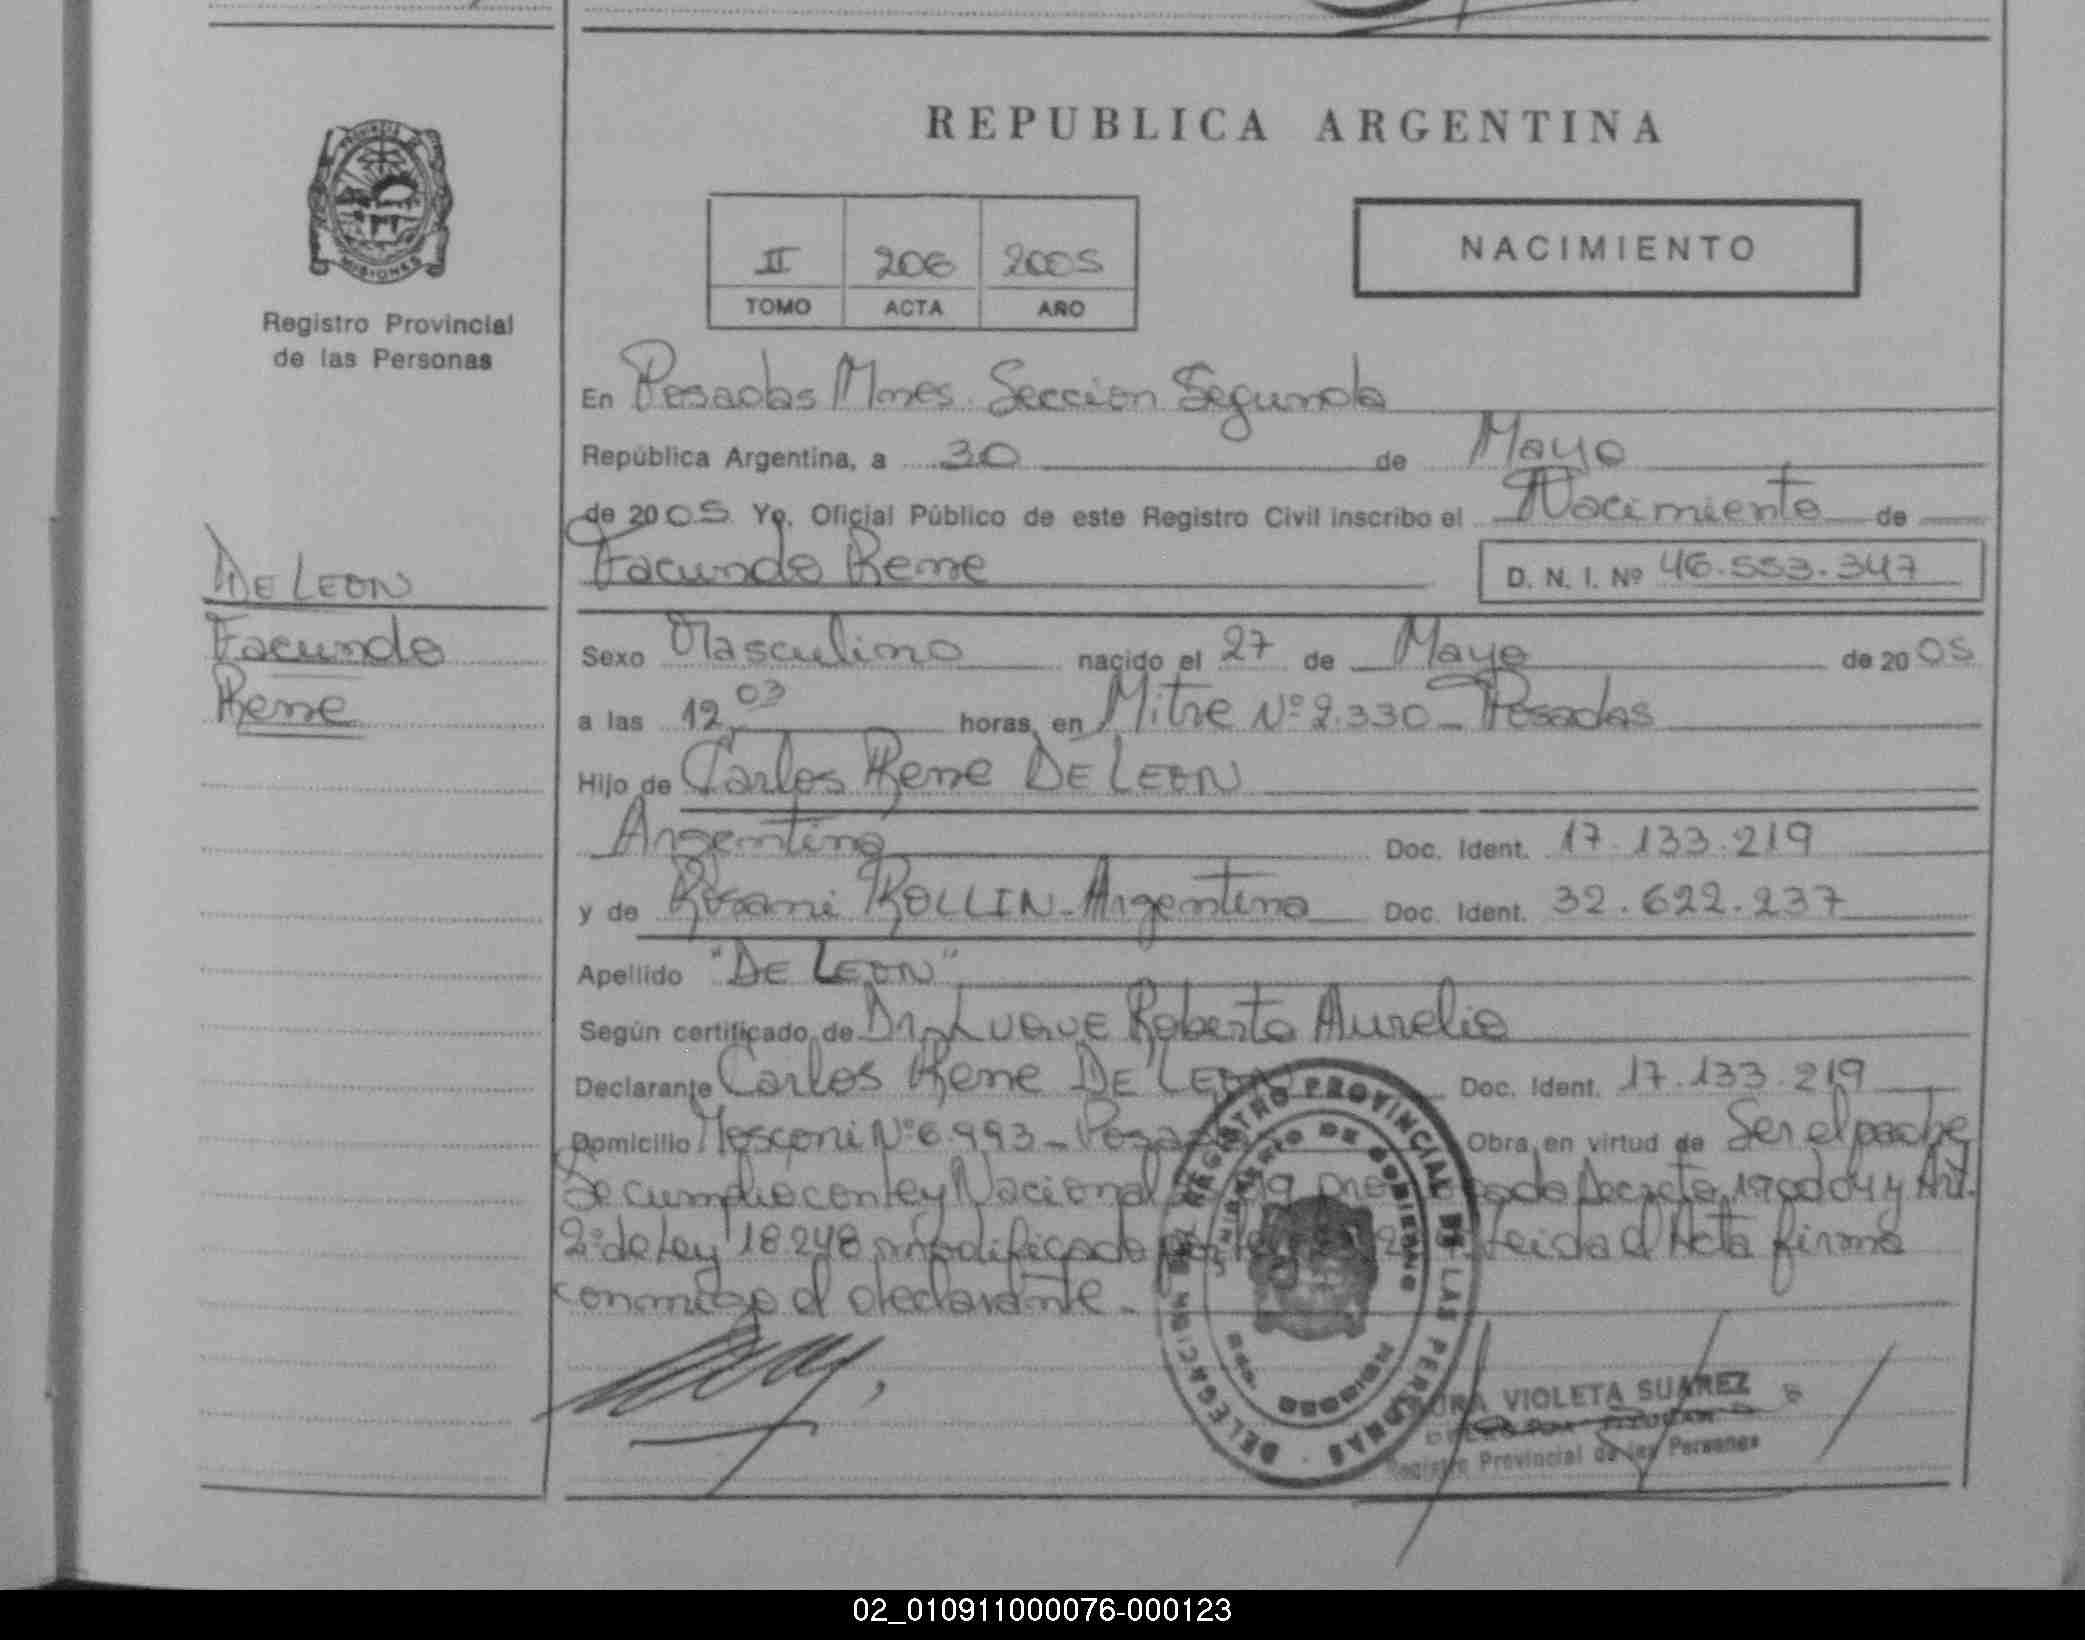 REPUBLICA ARGENTINA
PROVINCIA DE
MISIONES
Registro Provincial
de las Personas
II 206 2005
TOMO ACTA AÑO
NACIMIENTO
En Posadas Mnes. Seccion Segunda
República Argentina, a 30 de Mayo
de 2005 Yo, Oficial Público de este Registro Civil inscribo el Nacimiento de
Facundo Rene D. N. I. Nº 46.553.347
DE LEON
Facundo
Rene
Sexo Masculino nacido el 27 de Mayo de 2005
a las 12,03 horas, en Mitre Nº 2.330 - Posadas
Hijo de Carlos Rene DE LEON
Argentino Doc. Ident. 17.133.219
y de Rosani ROLLIN - Argentina Doc. Ident. 32.622.237
Apellido "DE LEON"
Según certificado de Dr. LUQUE Roberto Aurelio
Declarante Carlos Rene DE LEON Doc. Ident. 17.133.219
Domicilio Mosconi Nº 6.993 - Posadas Obra en virtud de Ser el padre
Se cumplio con ley Nacional Decreto 1900/04 y Art.
2º de Ley 18.248 modificado por Leida el Acta firma
conmigo el declarante.
REGISTRO PROVINCIAL DE LAS PERSONAS
MINISTERIO DE GOBIERNO
DELEGACION
MISIONES
VIOLETA SUAREZ
Registro Provincial de las Personas
02_010911000076-000123